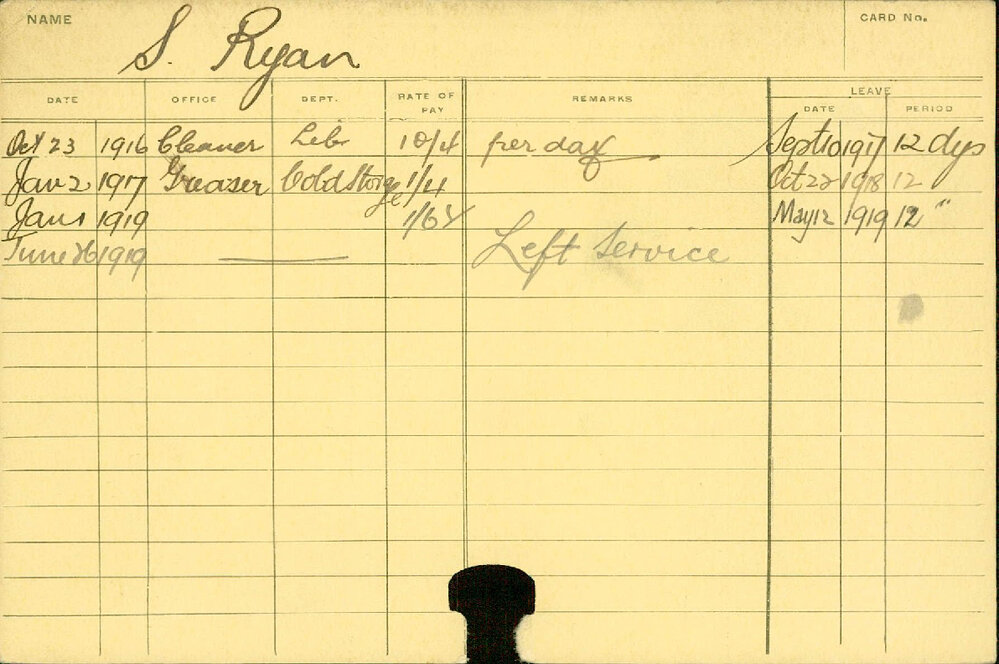 NAME S. Ryan CARD No.
DATE OFFICE DEPT. RATE OF PAY REMARKS LEAVE DATE PERIOD
Oct 23 1916 Cleaner Lib. 10/4 per day Sept 10 1917 12 dys
Jan 2 1917 Greaser Cold Storage 1/4 Oct 22 1918 12
Jan 1 1919 May 12 1919 12 "
June 26 1919 Left Service